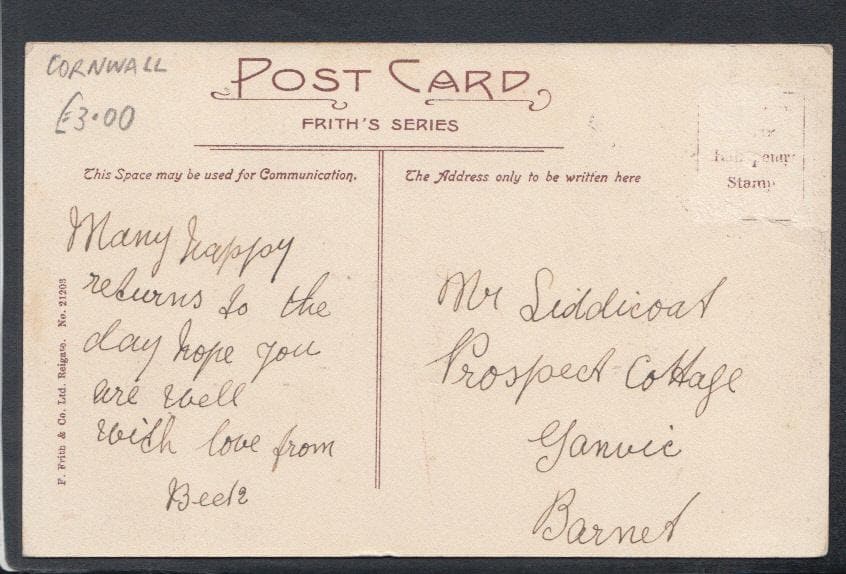 CORNWALL
£3.00
POST CARD
FRITH'S SERIES
This Space may be used for Communication.
The Address only to be written here
Stamp
Many happy
returns to the
day hope you
are well
with love from
F. Frith & Co. Ltd. Reigate. No. 21203
Mr Liddicoat
Prospect Cottage
Barnet